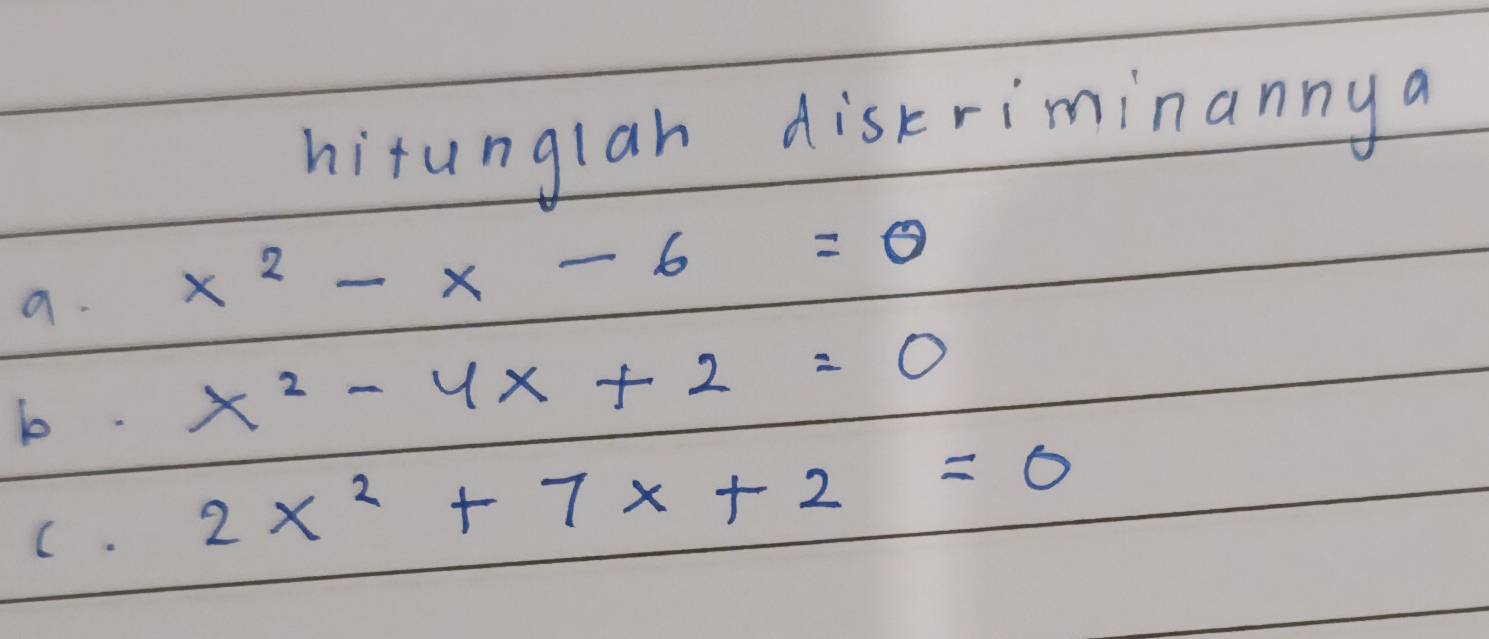 hitunglah diskriminannya
a. x² - x - 6 = 0
b. x² - 4x + 2 = 0
c. 2x² + 7x + 2 = 0